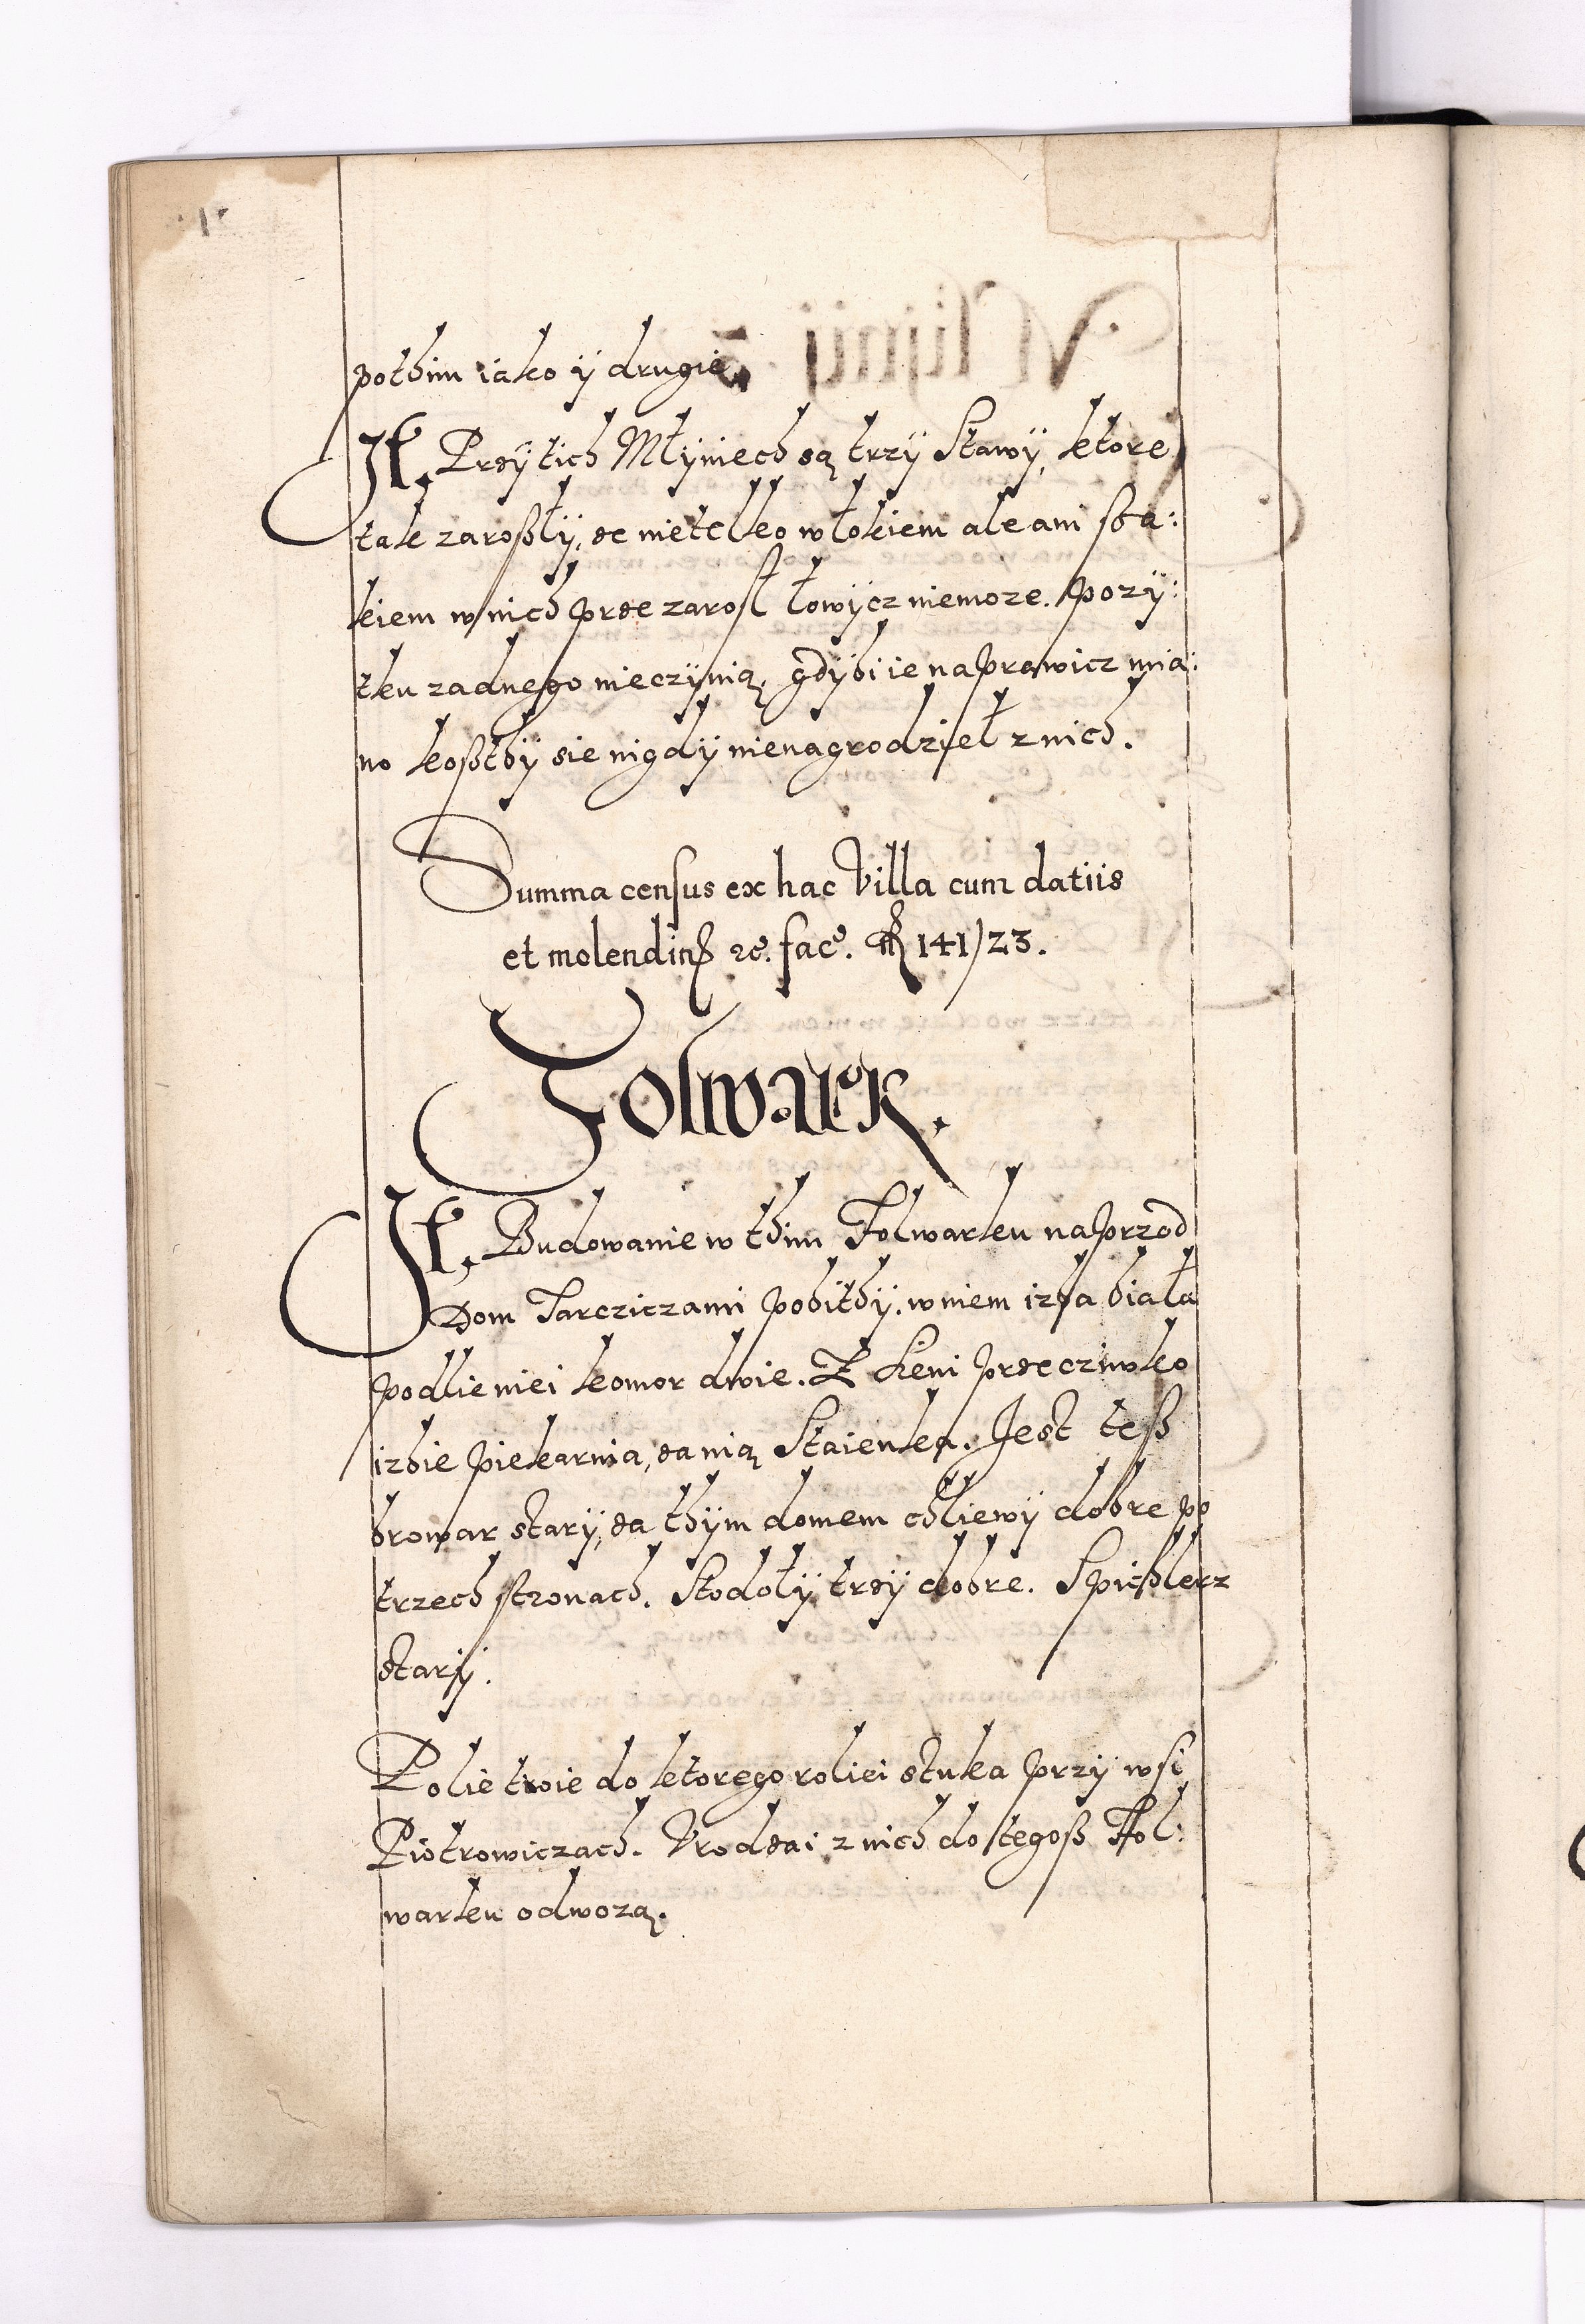 pothim iako ÿ drugie
It. Przÿ tich Młÿniech są trzÿ Stawÿ, ktore
tak zaroßłÿ, że nietelko włokiem ale ani sba:
kiem w nich prze zarosł łowÿcz niemoze. pozÿ:
tku zadnego nieczÿnią, gdÿbi ie naprawicz mia:
no koßthÿ sie nigdÿ nienagrodzieł z nich.
Summa census ex hac Villa cum datiis
et molendinß rc. facc. fl 141/23.
Folwark.
It. Budowanie w thim Folwarku naprzod
Dom Tarcziczami pobithÿ. w niem izba biała
podlie niei komor dwie. Z Sieni przecziwko
izbie piekarnia, za nią Staienka. Jest teß
browar starÿ, za thÿm domem chliewÿ dobre po
trzech stronach. Stodołÿ trzÿ dobre. Spichlerz
starÿ.
Polie troie do ktorego roliei stuka przÿ wsi
Piotrowiczach. Vrodzai z nich do tegoß Fol:
warku odwozą.